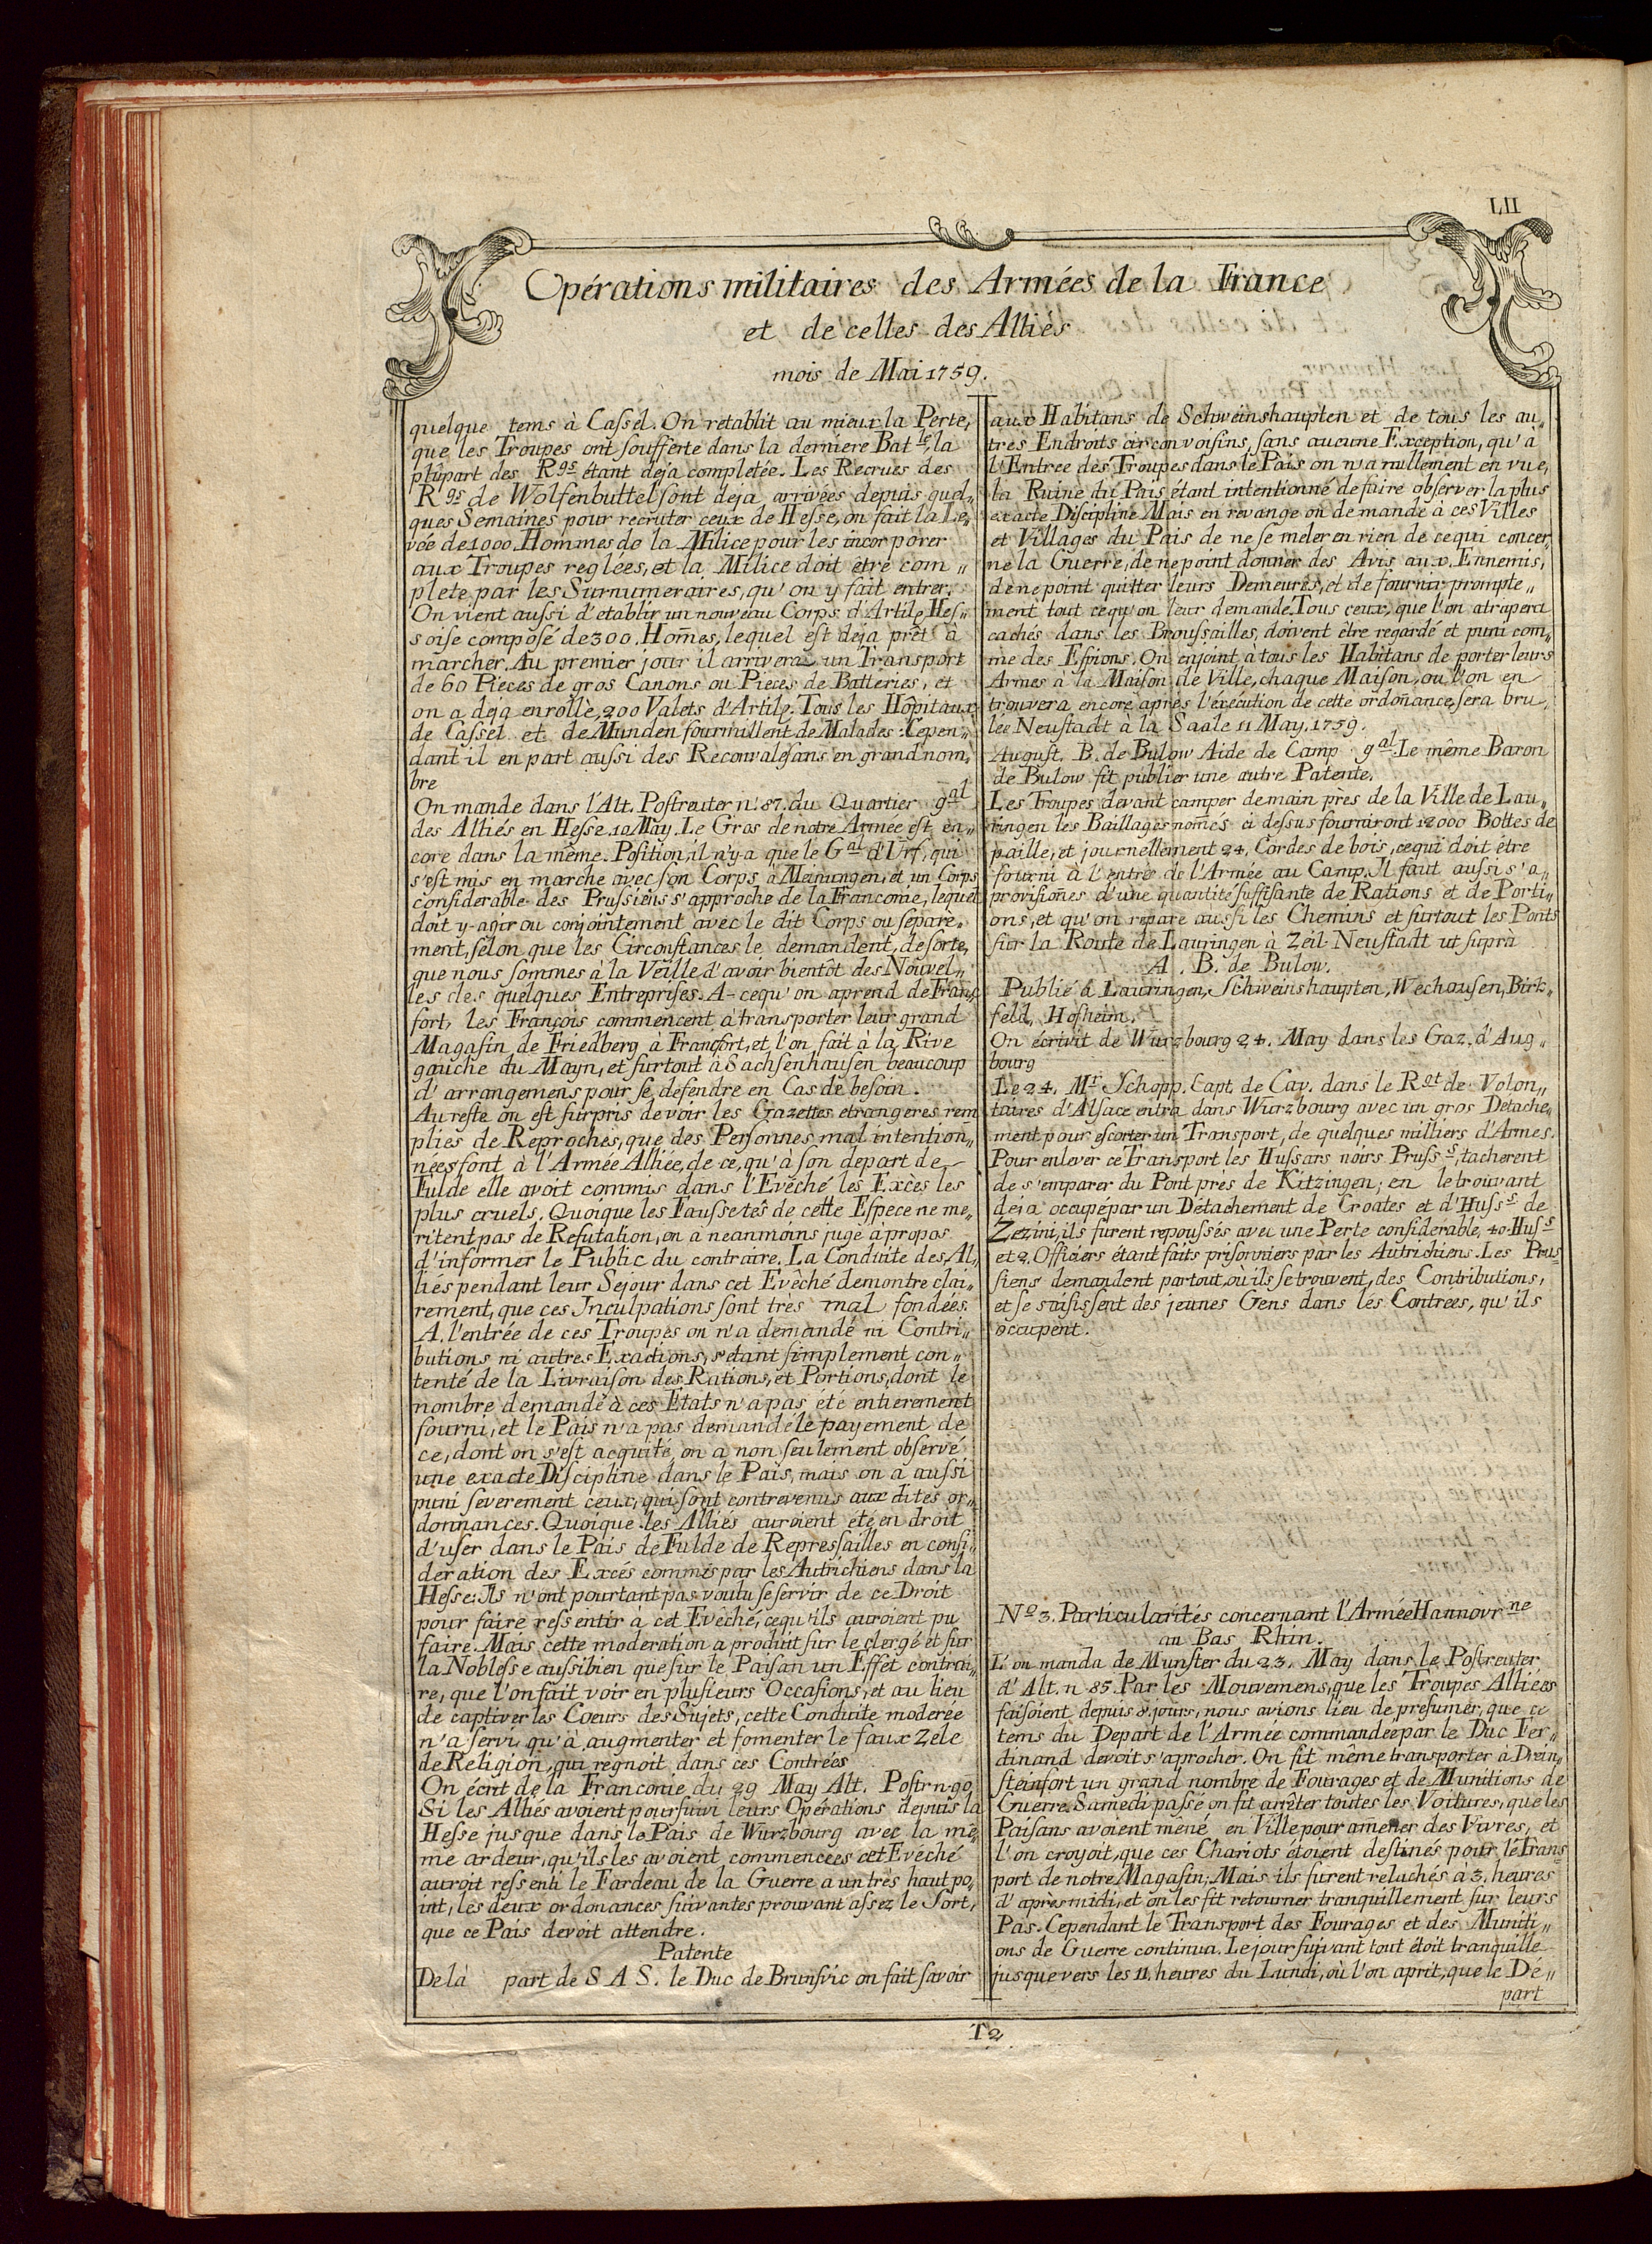 LII
Opérations militaires des Armées de la France
et de celles des Alliés
mois de Mai 1759.
quelque tems à Cassel. On retablit au mieux la Perte,
que les Troupes ont soufferte dans la derniere Bat.le, la
plûpart des R.gs étant deja completée. Les Recrues des
R.gs de Wolfenbuttel sont deja arrivées depuis quel„
ques Semaines pour recruter ceux de Hesse, on fait la Le„
vée de 1000 Hommes de la Milice pour les incorporer
aux Troupes reglées, et la Milice doit etre com„
plete par les Surnumeraires, qu'on y fait entrer.
On vient aussi d'etablir un nouveau Corps d'Artile Hes„
soise composé de 300. Hom̄es, lequel est deja prêt à
marcher. Au premier jour il arrivera un Transport
de 60 Pieces de gros Canons ou Pieces de Batteries, et
on a deja enrollé 200 Valets d'Artile. Tous les Hôpitaux
de Cassel et de Munden fourmillent de Malades: Cepen„
dant il en part aussi des Reconvalesans en grand nom„
bre
On mande dans l'Alt. Postreuter n. 87. du Quartier g.al
des Alliés en Hesse 10 May. Le Gros de notre Armée est en„
core dans la même Position, il n'y-a que le G.al d'Urf, qui
s'est mis en marche avec son Corps à Meinungen, et un Corps
considerable des Prussiens s'approche de la Franconie, lequel
doit y-agir ou conjointement avec le dit Corps ou separe„
ment, selon que les Circonstances le demandent, de sorte,
que nous sommes à la Veille d'avoir bientôt des Nouvel„
les des quelques Entreprises. A-cequ'on aprend de Franc
fort, les François commencent à transporter leur grand
Magasin de Friedberg à Francfort, et l'on fait à la Rive
gauche du Mayn, et surtout à Sachsenhausen beaucoup
d'arrangemens pour se defendre en Cas de besoin.
Au reste on est surpris de voir les Gazettes etrangeres rem
plies de Reproches, que des Personnes mal intention„
nées font à l'Armée Alliée, de ce, qu'à son depart de
Fulde elle avoit commis dans l'Evêché les Excès les
plus cruels. Quoique les Faussetés de cette Espece ne me„
ritent pas de Refutation, on a neanmoins jugé à propos
d'informer le Public du contraire. La Conduite des Al„
liés pendant leur Sejour dans cet Evêché demontre clai„
rement, que ces Inculpations sont très mal fondées.
A l'entrée de ces Troupes on n'a demandé ni Contri„
butions ni autres Exactions, s'etant simplement con„
tenté de la Livraison des Rations, et Portions, dont le
nombre demandé à ces Etats n'a pas été entierement
fourni, et le Païs n'a pas demandé le payement de
ce, dont on s'est acquité, on a non seulement observé
une exacte Discipline dans le Païs, mais on a aussi
puni severement ceux, qui sont contrevenus aux dites or„
donnances. Quoique les Alliés auroient été en droit
d'user dans le Païs de Fulde de Repressailles en consi„
deration des Excés commis par les Autrichiens dans la
Hesse: Ils n'ont pourtant pas voulu se servir de ce Droit
pour faire ressentir à cet Evêché, cequ'ils auroient pu
faire. Mais cette moderation a produit sur le clergé et sur
la Noblesse aussibien que sur le Païsan un Effet contrai„
re, que l'on fait voir en plusieurs Occasions, et au lieu
de captiver les Cœurs des Sujets, cette Conduite moderée
n'a servi qu'à augmenter et fomenter le faux Zele
de Religion, qui regnoit dans ces Contrées
On écrit de la Franconie du 29 May Alt. Postr n. 90
Si les Alliés avoient poursuivi leurs Opérations depuis la
Hesse jusque dans le Païs de Wurzbourg avec la mê„
me ardeur, qu'ils les avoient commencées cet Evêché
auroit ressenti le Fardeau de la Guerre a un très haut po„
int, les deux ordonances suivantes prouvant assez le Sort,
que ce Païs devoit attendre.
Patente
De là part de S A S. le Duc de Brunsvic on fait savoir
aux Habitans de Schweinshaupten et de tous les au„
tres Endroits circonvoisins, sans aucune Exception, qu'a
l'Entree des Troupes dans le Païs on n'a nullement en vue,
la Ruine du Païs étant intentionné de faire observer la plus
exacte Discipline Mais en revange on demande à ces Villes
et Villages du Païs de ne se meler en rien de cequi concer„
ne la Guerre, de ne point donner des Avis aux Ennemis,
de ne point quitter leurs Demeures, et de fournir prompte„
ment tout cequ'on leur demande. Tous ceux, que l'on atrapera
cachés dans les Broussailles, doivent être regardé et puni com„
me des Espions. On enjoint à tous les Habitans de porter leurs
Armes a la Maison de Ville, chaque Maison, ou l'on en
trouvera encore après l'éxécution de cette ordoñance, sera bru„
lée Neustadt à la Saale 11 May, 1759.
August. B. de Bulow Aide de Camp g.al Le même Baron
de Bulow fit publier une autre Patente.
Les Troupes devant camper demain près de la Ville de Lau„
ringen les Baillages nom̄és ci dessus fourniront 12000 Bottes de
paille, et journellement 24, Cordes de bois, cequi doit étre
fourni à l'entrés de l'Armée au Camp. Il faut aussi s'a„
provisioñes d'une quantité suffisante de Rations et de Porti„
ons, et qu'on repare aussi les Chemins et surtout les Ponts
sur la Route de Lauringen à Zeil Neustadt ut suprà
A. B. de Bulow.
Publié à Lauringen, Schweinshaupten, Wechausen, Birk„
feld, Hofheim.
On écrivit de Wurzbourg 24. May dans les Gaz. d'Aug„
bourg
Le 24. M.r Schopp. Capt. de Cav. dans le R.gt de Volon„
taires d'Alsace entra dans Wurzbourg avec un gros Detache„
ment pour escorter un Transport, de quelques milliers d'Armes.
Pour enlever ce Transport les Hussars noirs Pruss.s, tacherent
de s'emparer du Pont près de Kitzingen; en le trouvant
deja occupé par un Détachement de Croates et d'Huss.s de
Zezini, ils furent repoussés avec une Perte considerable, 40. Hus.s
et 2. Officiers étant faits prisonniers par les Autrichiens. Les Prus„
siens demandent partout, où ils se trouvent, des Contributions,
et se saisissent des jeunes Gens dans lés Contrées, qu'ils
occupent.
No 3. Particularités concernant l'Armée Hannovr.ne
au Bas Rhin.
L'on manda de Munster du 23. May dans le Postreuter
d'Alt. n 85. Par les Mouvemens, que les Troupes Alliées
faisoient depuis 8. jours, nous avions lieu de presumer, que ce
tems du Depart de l'Armée commandée par le Duc Fer„
dinand devoit s'aprocher. On fit même transporter à Drein„
steinfort un grand nombre de Fourages et de Munitions de
Guerre. Samedi passé on fit arrêter toutes les Voitures, que les
Païsans avoient mené en Ville pour amener des Vivres, et
l'on croyoit, que ces Chariots étoient destinés pour le Trans„
port de notre Magasin; Mais ils furent relachés à 3. heures
d'après midi, et on les fit retourner tranquillement sur leurs
Pas. Cependant le Transport des Fourages et des Muniti„
ons de Guerre continua. Le jour suivant tout étoit tranquille
jusque vers les 11. heures du Lundi, où l'on aprit, que le De„
part
T 2